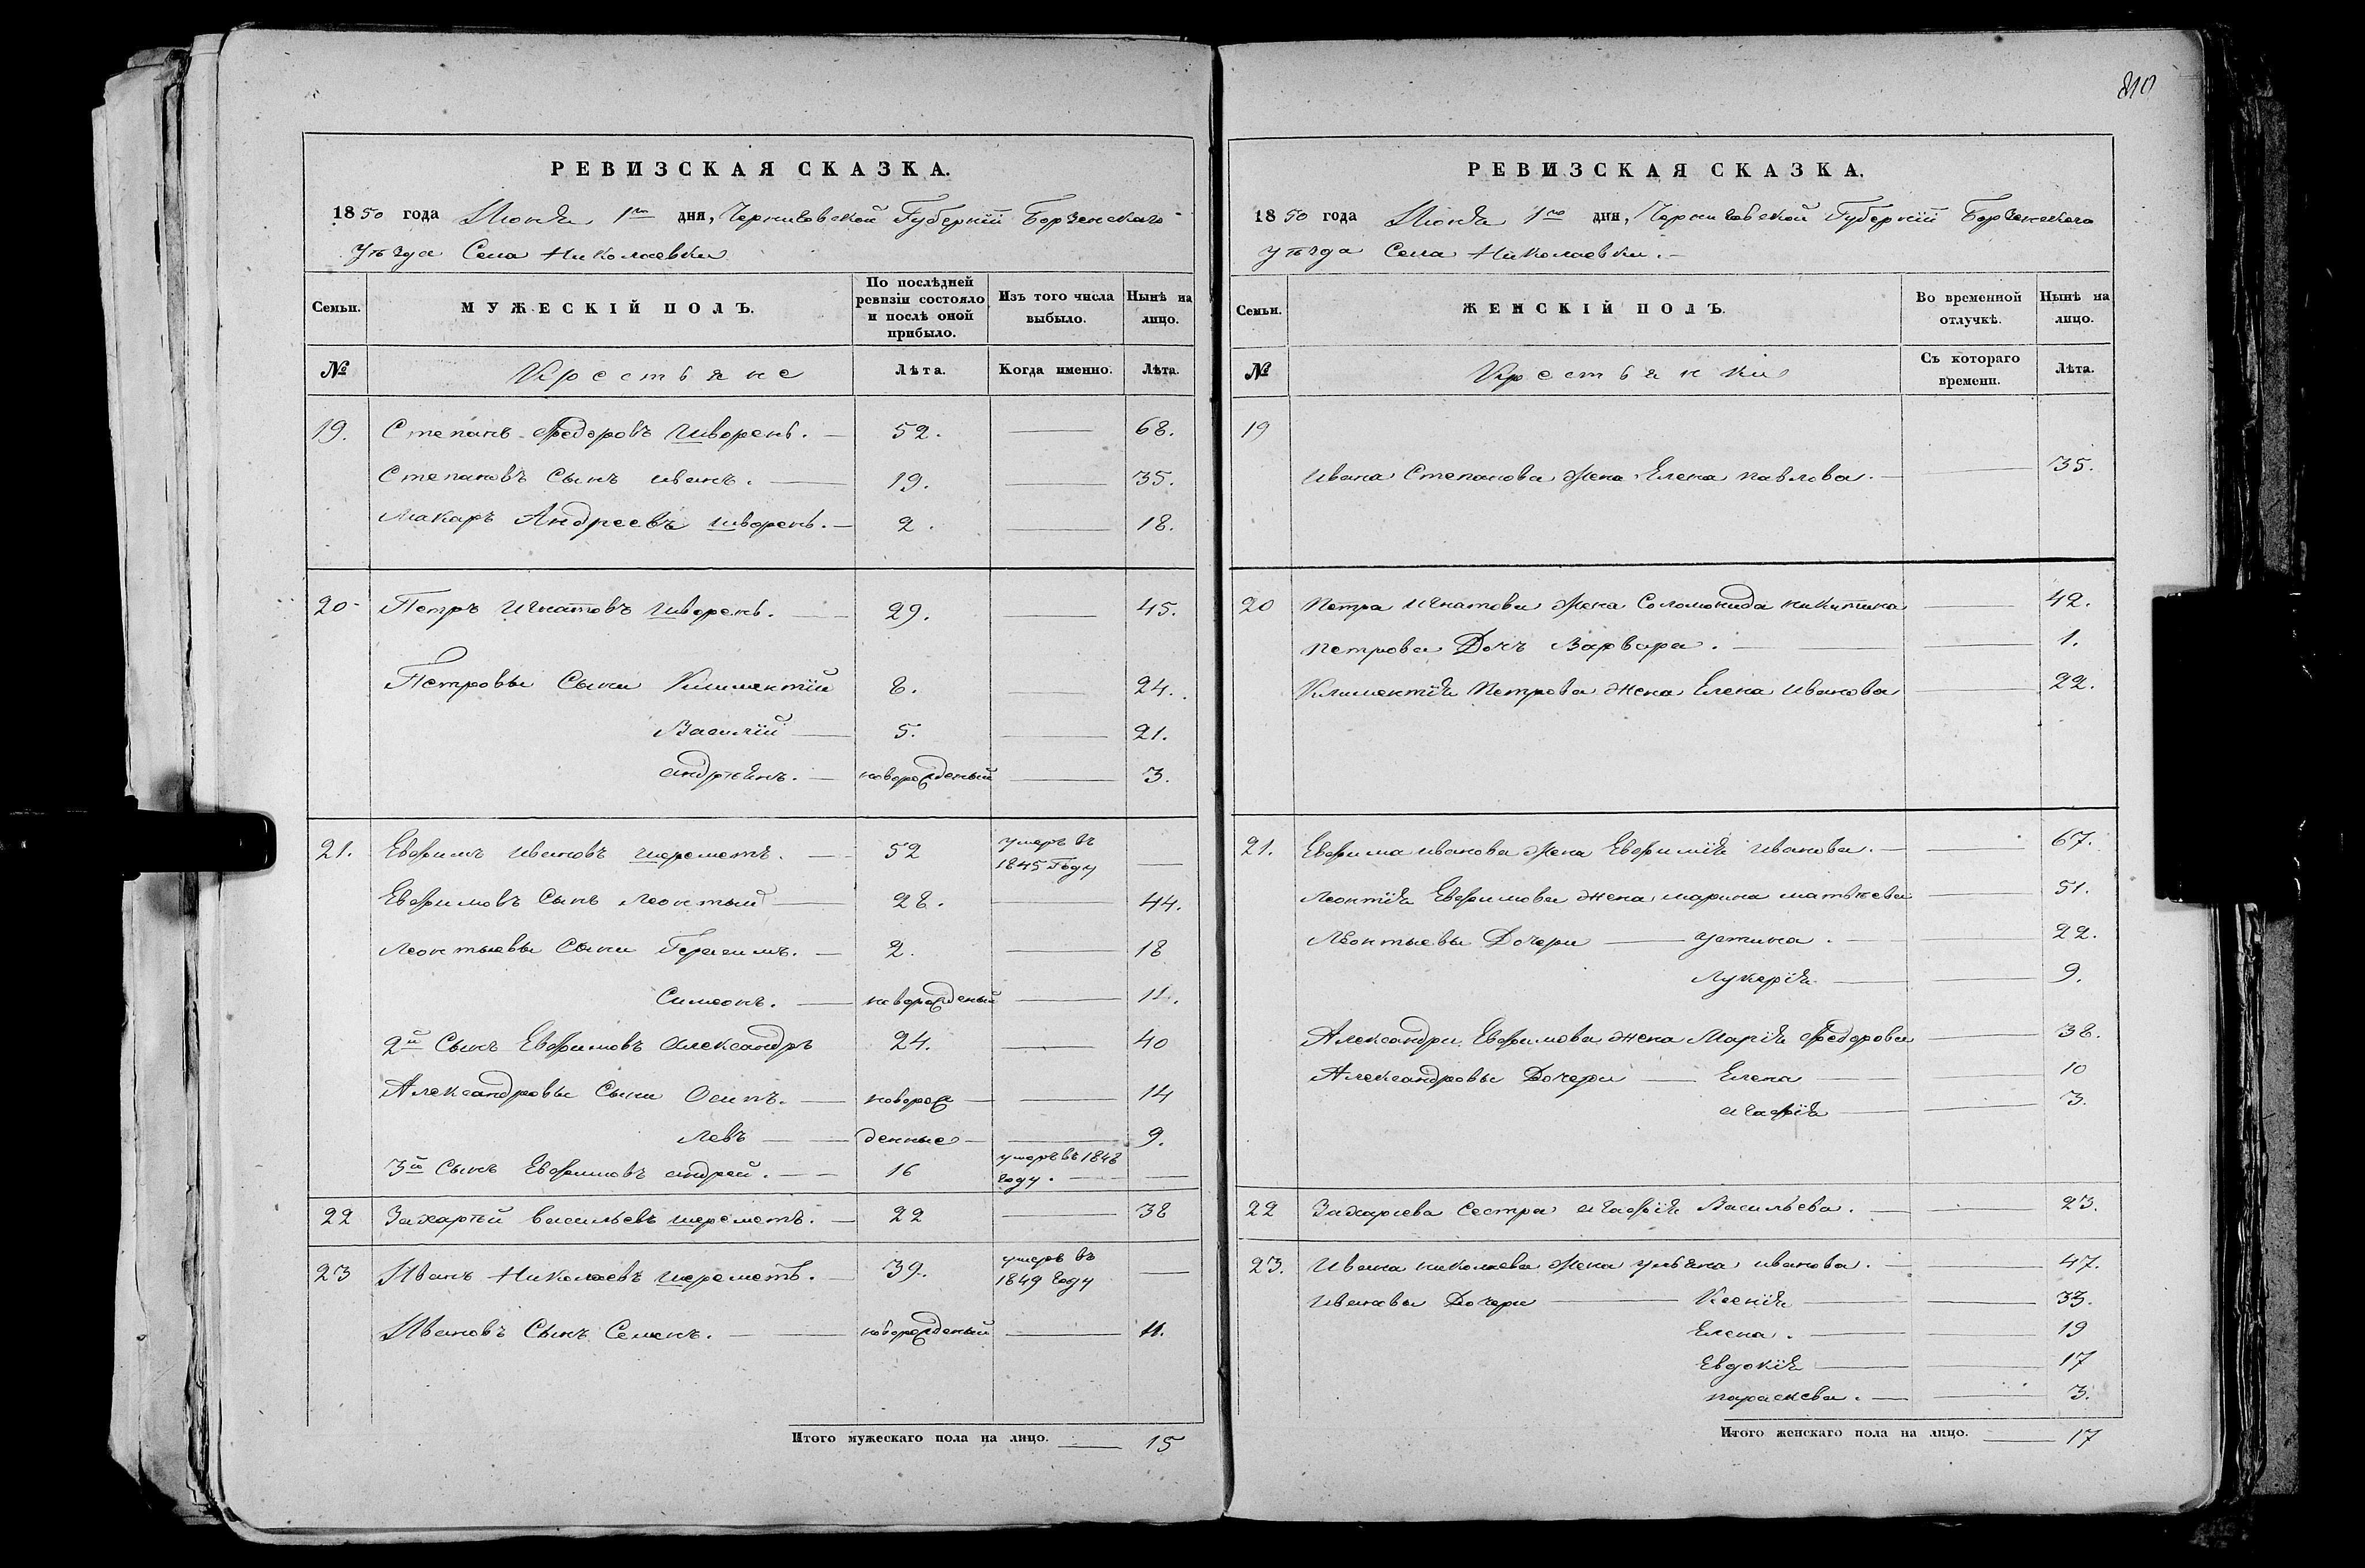 810
РЕВИЗСКАЯ СКАЗКА.
1850 года Июня 1го дня, Черниговской Губернїи Борзенскаго
уѣзда Села Николаевки
Семьи. МУЖЕСКІЙ ПОЛЪ. По послѣдней ревизіи состояло и послѣ оной прибыло. Изъ того числа выбыло. Нынѣ на лицо.
№ Крестьяне Лѣта. Когда именно. Лѣта.
19. Степанъ Федоровъ Шворень. — 52. — 68.
Степановъ Сынъ иванъ. — 19. — 35.
Макаръ Андреевъ шворень. — 2. — 18.
20 Петръ Игнатовъ Шворень. — 29. — 45.
Петровы Сыны Климентїй 8. — 24.
Василїй — 5. — 21.
андрїянъ. — новорожденый — 3.
21. Евфимъ ивановъ шереметъ. — 52 умеръ въ 1845 Году —
Евфимовъ Сынъ Леонтый — 28. — 44.
Леонтыевы Сыны Герасимъ. — 2. — 18
Симеонъ. — новорожденый — 11.
2й Сынъ Евфимовъ Александръ 24. — 40
Александровы Сыны Осипъ. — новорож — — 14
Левъ — — денные — — 9.
3й Сынъ Евфимовъ андрей. — — 16 умеръ въ 1848 году. — —
22 Захарїй васильевъ шереметъ. — 22 — 38
23 Иванъ Николаевъ шереметъ. — 39. умеръ въ 1849 году —
Ивановъ Сынъ Семенъ. — — новорожденый — 11.
Итого мужескаго пола на лицо. — 15
РЕВИЗСКАЯ СКАЗКА.
1850 года Июня 1го дня, Черниговской Губернїи Борзенскаго
уѣзда Села Николаевки. —
Семьи. ЖЕНСКІЙ ПОЛЪ. Во временной отлучкѣ. Нынѣ на лицо.
№ Крестьянки Съ котораго времени. Лѣта.
19
ивана Степанова жена Елена павлова. — — 35.
20 Петра Игнатова жена Соломонида никитина — 42.
петрова Дочъ Варвара. — — 1.
Климентїя Петрова жена Елена иванова — 22.
21. Евфима иванова жена Евфимїя иванова. — — 67.
Леонтїя Евфимова жена марина матвѣева — 51.
Леонтыевы Дочери — устина. — — 22.
Лукерїя — — 9.
Александра Евфимова жена Марїя Федорова — 38.
Александровы Дочери — Елена — — 10
агафїя — — 3.
22 Захарїева Сестра агафїя Васильева. — — 23.
23. Ивана николаева жена ульяна иванова. — — 47.
ивановы Дочери — Ксенїя — — 33.
Елена. — — 19
Евдокїя — — 17
параскева. — — 3.
Итого женскаго пола на лицо. — 17